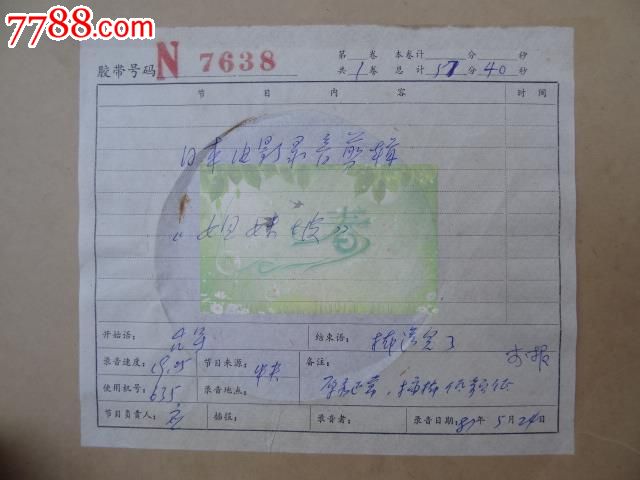 7788.com
中国收藏热线
胶带号码 N 7638 第 卷 本卷计 分 秒
共 1 卷 总计 57 分 40 秒
节目内容 时间
日本电影录音剪辑
《姐妹坡》
春
开始语: 结束语: 播送完了
录音速度: 19.05 节目来源: 中央 备注:
使用机号: 635 录音地点:
节目负责人: 播报: 录音者: 录音日期: 87年5月24日